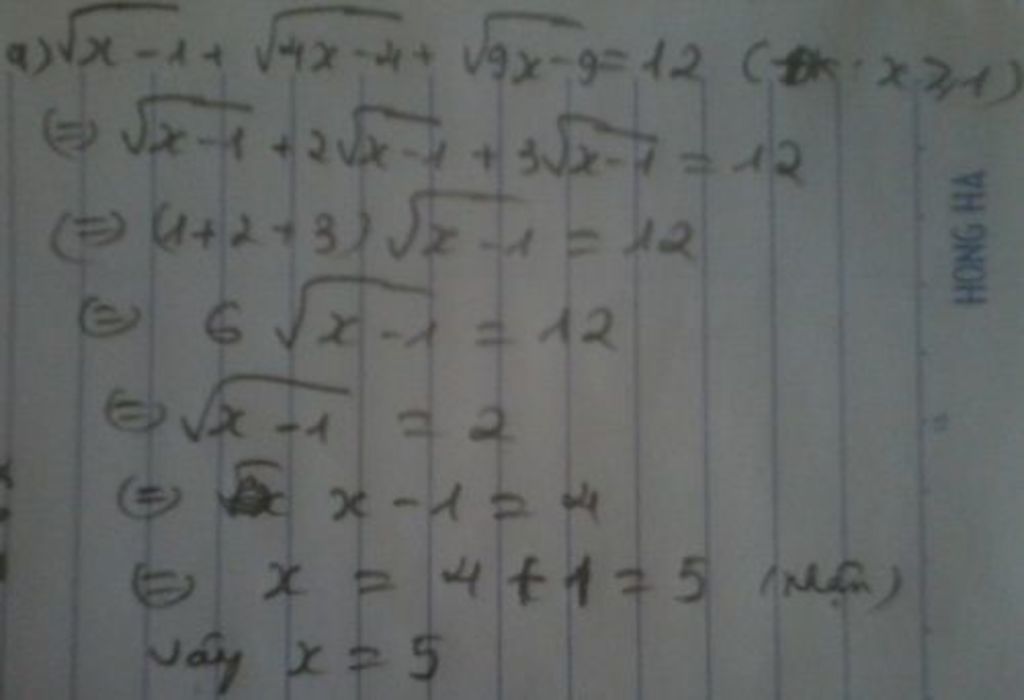 a) √x-1 + √4x-4 + √9x-9 = 12 (đk: x ≥ 1)
(=) √x-1 + 2√x-1 + 3√x-1 = 12
(=) (1+2+3) √x-1 = 12
(=) 6 √x-1 = 12
(=) √x-1 = 2
(=) x - 1 = 4
(=) x = 4 + 1 = 5 (nhận)
vậy x = 5
HONG HA